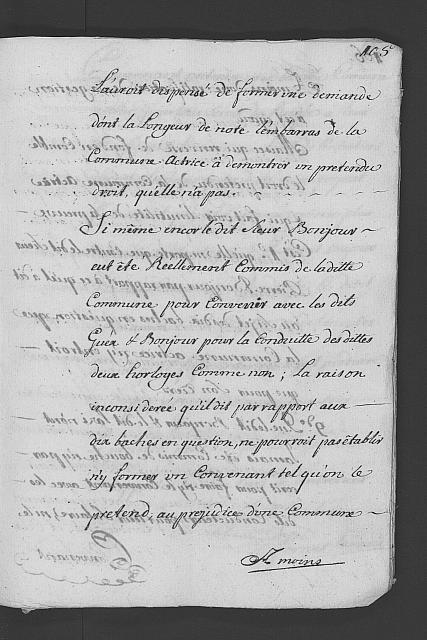 165
L'auroit dispensé de former une demande
dont la Longeur de note l'embarras de la
Commune Actrice à demontrer un pretendu
droit, qu'elle n'a pas.
Si même encor le dit sieur Bonjour
eut été Reellement Commis de la ditte
Commune pour Convenir avec les dits
Guex & Bonjour pour la Conduitte des dittes
deux horloges Comme non ; La raison
inconsiderée qu'il dit par rapport aux
dix baches en question, ne pourroit pas établir
n'y former un Convenant tel qu'on le
pretend, au prejudice d'une Commune
A moins